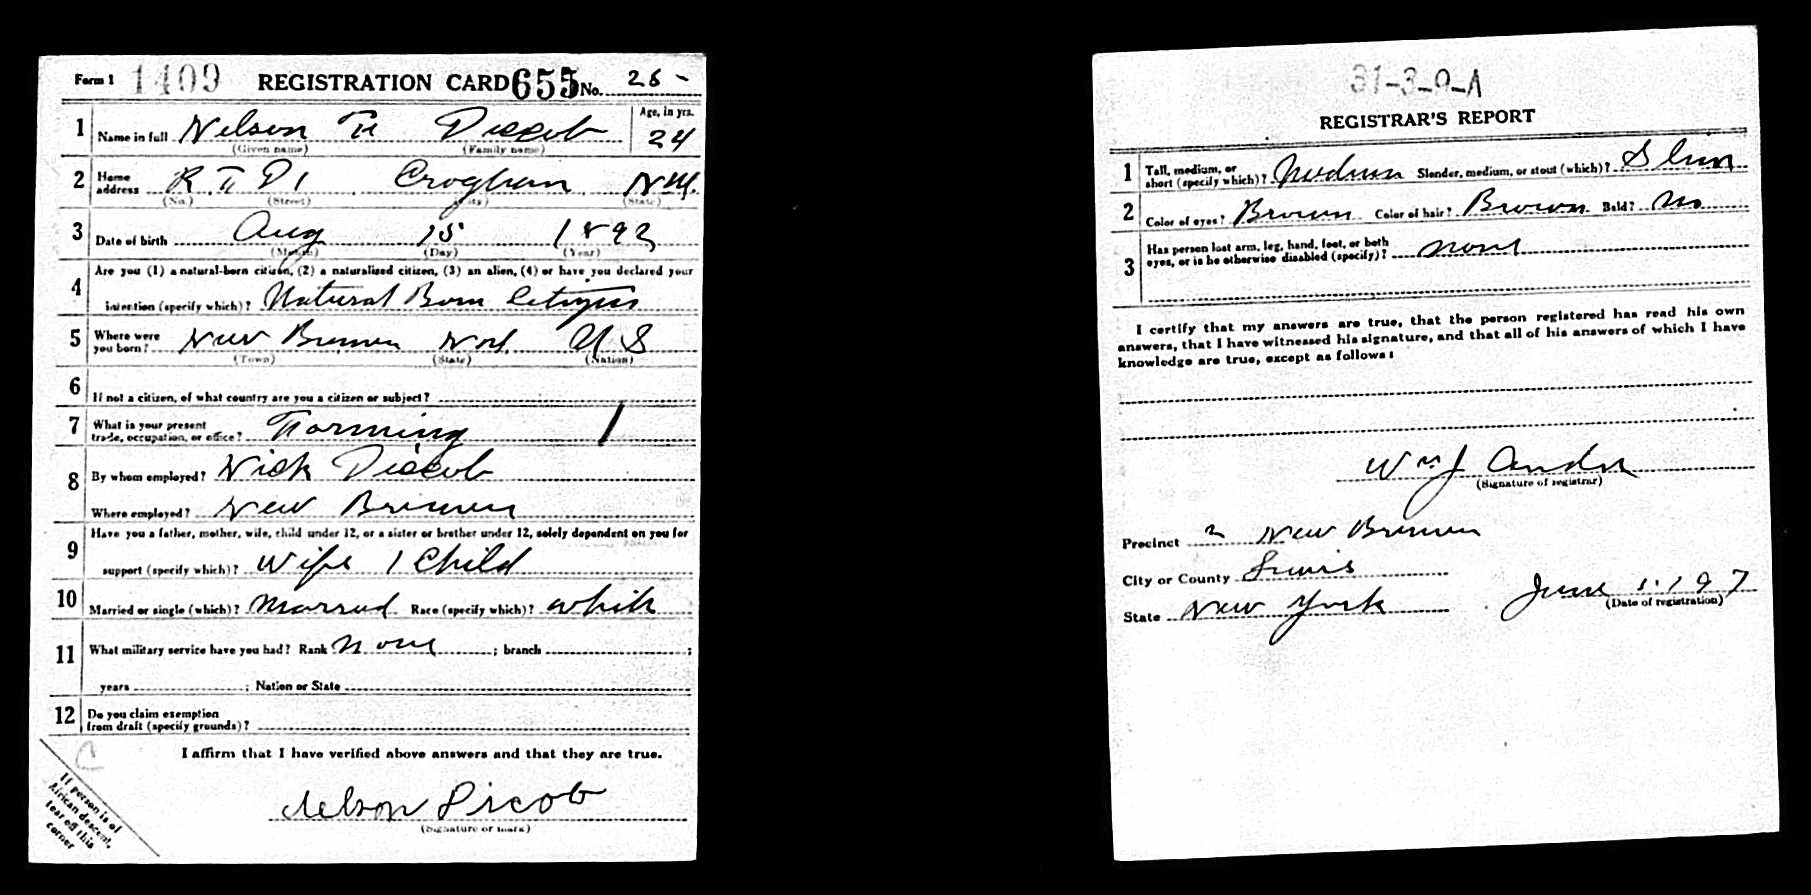 Form 1 1409 REGISTRATION CARD 655 No. 26 -
1 Name in full Nelson F Discob Age, in yrs. 24
(Given name) (Family name)
2 Home address R F D 1 Croghan N.Y.
(No.) (Street) (City) (State)
3 Date of birth Aug 15 1892
(Month) (Day) (Year)
4 Are you (1) a natural-born citizen, (2) a naturalized citizen, (3) an alien, (4) or have you declared your
intention (specify which)? Natural Born Citizen
5 Where were you born? New Bremen N.Y. U S
(Town) (State) (Nation)
6 If not a citizen, of what country are you a citizen or subject?
7 What is your present trade, occupation, or office? Farming 1
8 By whom employed? Nick Discob
Where employed? New Bremen
9 Have you a father, mother, wife, child under 12, or a sister or brother under 12, solely dependent on you for
support (specify which)? Wife 1 Child
10 Married or single (which)? Married Race (specify which)? White
11 What military service have you had? Rank None ; branch ;
years ; Nation or State
12 Do you claim exemption from draft (specify grounds)?
I affirm that I have verified above answers and that they are true.
Nelson Discob
(Signature or mark)
C
If person is of
African descent,
tear off this
corner
31-3-9-A
REGISTRAR'S REPORT
1 Tall, medium, or short (specify which)? Medium Slender, medium, or stout (which)? Slim
2 Color of eyes? Brown Color of hair? Brown Bald? No
3 Has person lost arm, leg, hand, foot, or both eyes, or is he otherwise disabled (specify)? None
I certify that my answers are true, that the person registered has read his own
answers, that I have witnessed his signature, and that all of his answers of which I have
knowledge are true, except as follows:
Wm J
(Signature of registrar)
Precinct 2 New Bremen
City or County Lewis
State New York June 5 1917
(Date of registration)